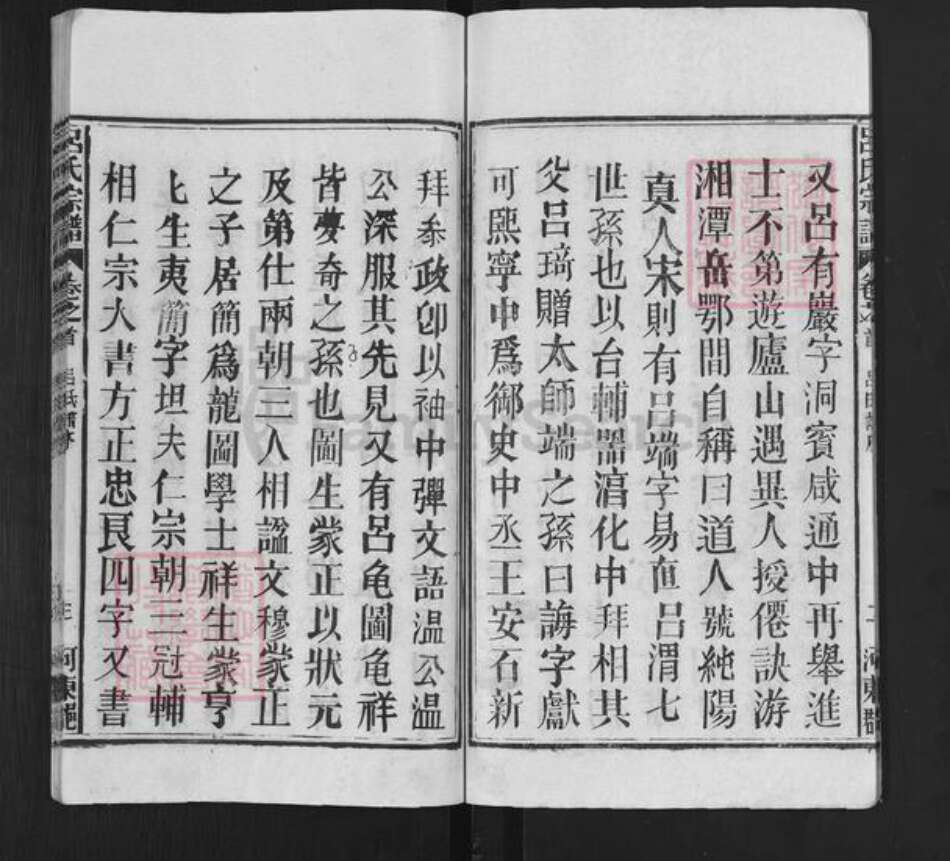 又呂有巖字洞賓咸通中再舉進
士不第遊廬山遇異人授僊訣游
湘潭岳鄂間自稱曰道人號純陽
真人宋則有呂端字易直呂渭七
世孫也以台輔器淳化中拜相其
父呂琦贈太師端之孫曰誨字獻
可熙寧中爲御史中丞王安石新
拜叅政卽以袖中彈文語温公温
公深服其先見又有呂龟圖龟祥
皆夢奇之孫也圖生䝉正以狀元
及第仕兩朝三入相謚文穆䝉正
之子居簡爲龍圖學士祥生䝉亨
亨生夷簡字坦夫仁宗朝三冠輔
相仁宗大書方正忠良四字又書
呂氏宗譜 卷之首
河東郡
呂氏宗譜 卷之首
二 河東郡
FamilySearch